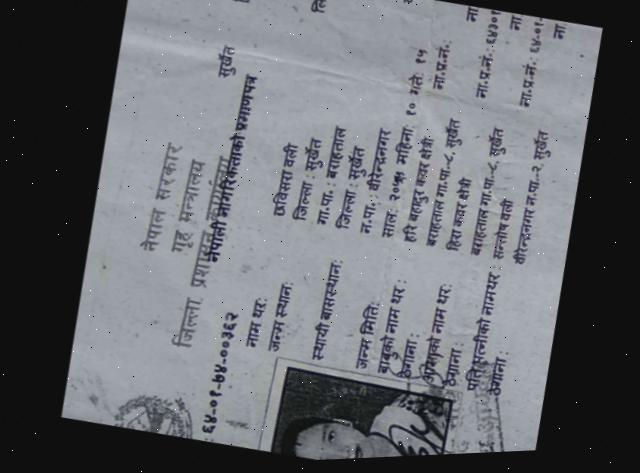 नेपाल सरकार
गृह मन्त्रालय
जिल्ला प्रशासन कार्यालय सुर्खेत
नेपाली नागरिकताको प्रमाणपत्र
: ६४-०१-७४-००३६२
नाम थर: छविसरा वली
जन्म स्थान: जिल्ला : सुर्खेत
गा.पा. : बराहताल
स्थायी बासस्थान: जिल्ला : सुर्खेत
न.पा.: वीरेन्द्रनगर
जन्म मिति: साल: महिना: १० गते: १५
बाबुको नाम थर : हरि बहादुर कवर क्षेत्री ना.प्र.नं.:
ठेगाना : बराहताल गा.पा.-८, सुर्खेत
आमाको नाम थर: हिरा कवर क्षेत्री ना.प्र.नं.:
ठेगाना : बराहताल गा.पा.-८, सुर्खेत
पति/पत्नीको नामथर : सन्तोष वली ना.प्र.नं.: ६४-०१-
ठेगाना : वीरेन्द्रनगर न.पा.-२, सुर्खेत